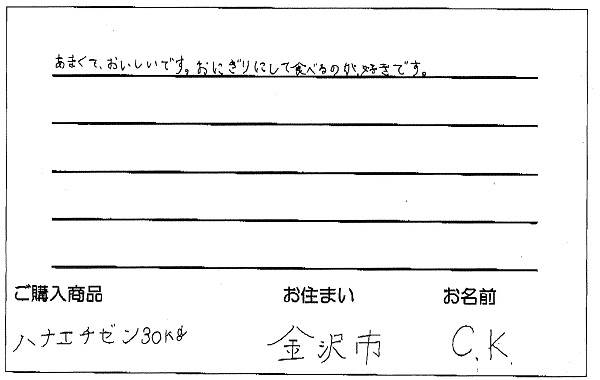 あまくて、おいしいです。おにぎりにして食べるのが、好きです。
ご購入商品 お住まい お名前
ハナエチゼン30kg 金沢市 C.K.